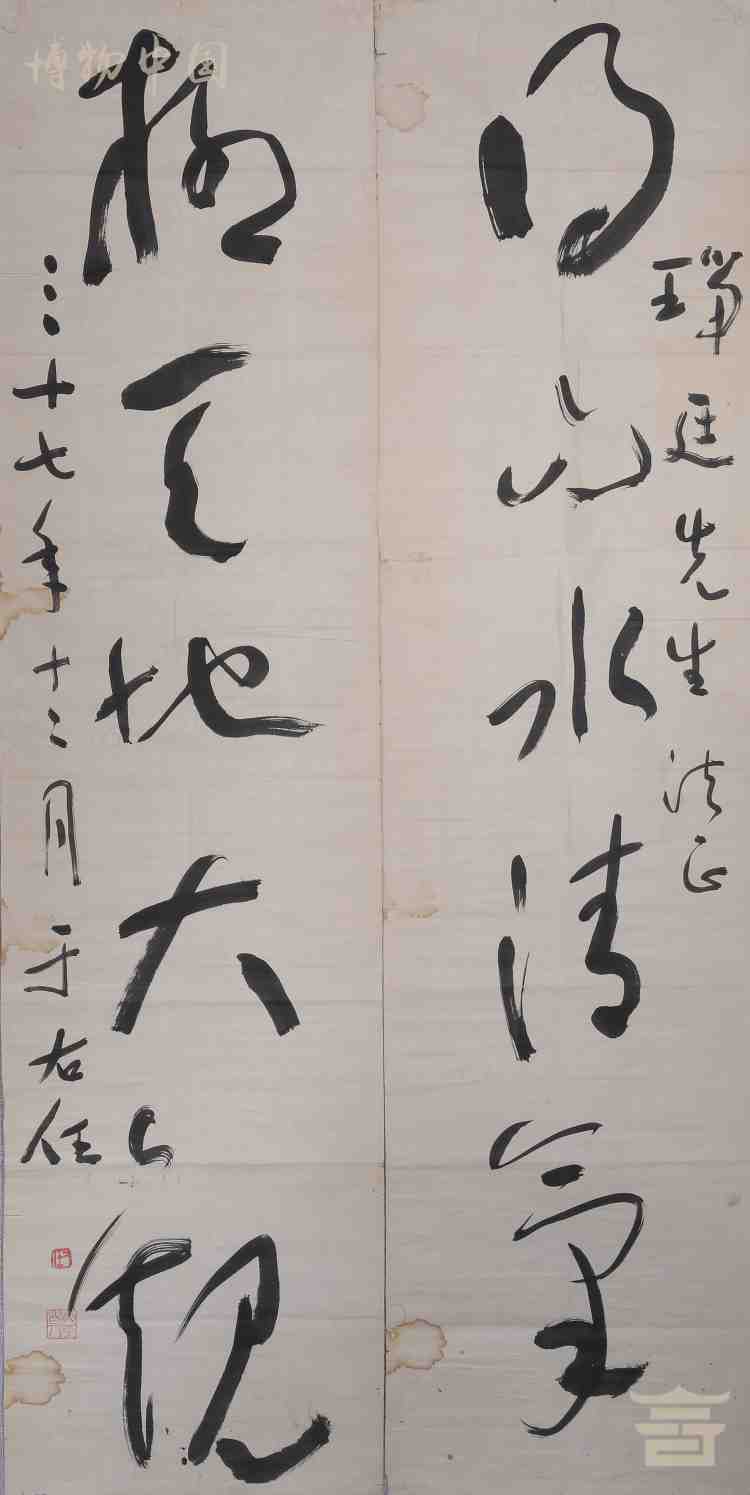 瑞廷先生法正
得山水清气
极天地大观
三十七年十二月于右任
博物中国